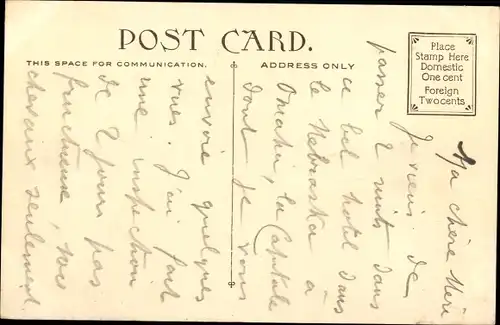 POST CARD.
THIS SPACE FOR COMMUNICATION.
ADDRESS ONLY
Place
Stamp Here
Domestic
One cent
Foreign
Two cents
Ma chère Mère
Je viens de
passer 2 nuits dans
ce bel hotel dans
le Nebraska à
Omaha, la Capitale
dont je vous
envoie quelques
vues. J'ai fait
une inspection
de 2 jours pas
fructueuse, 
chevaux seulement